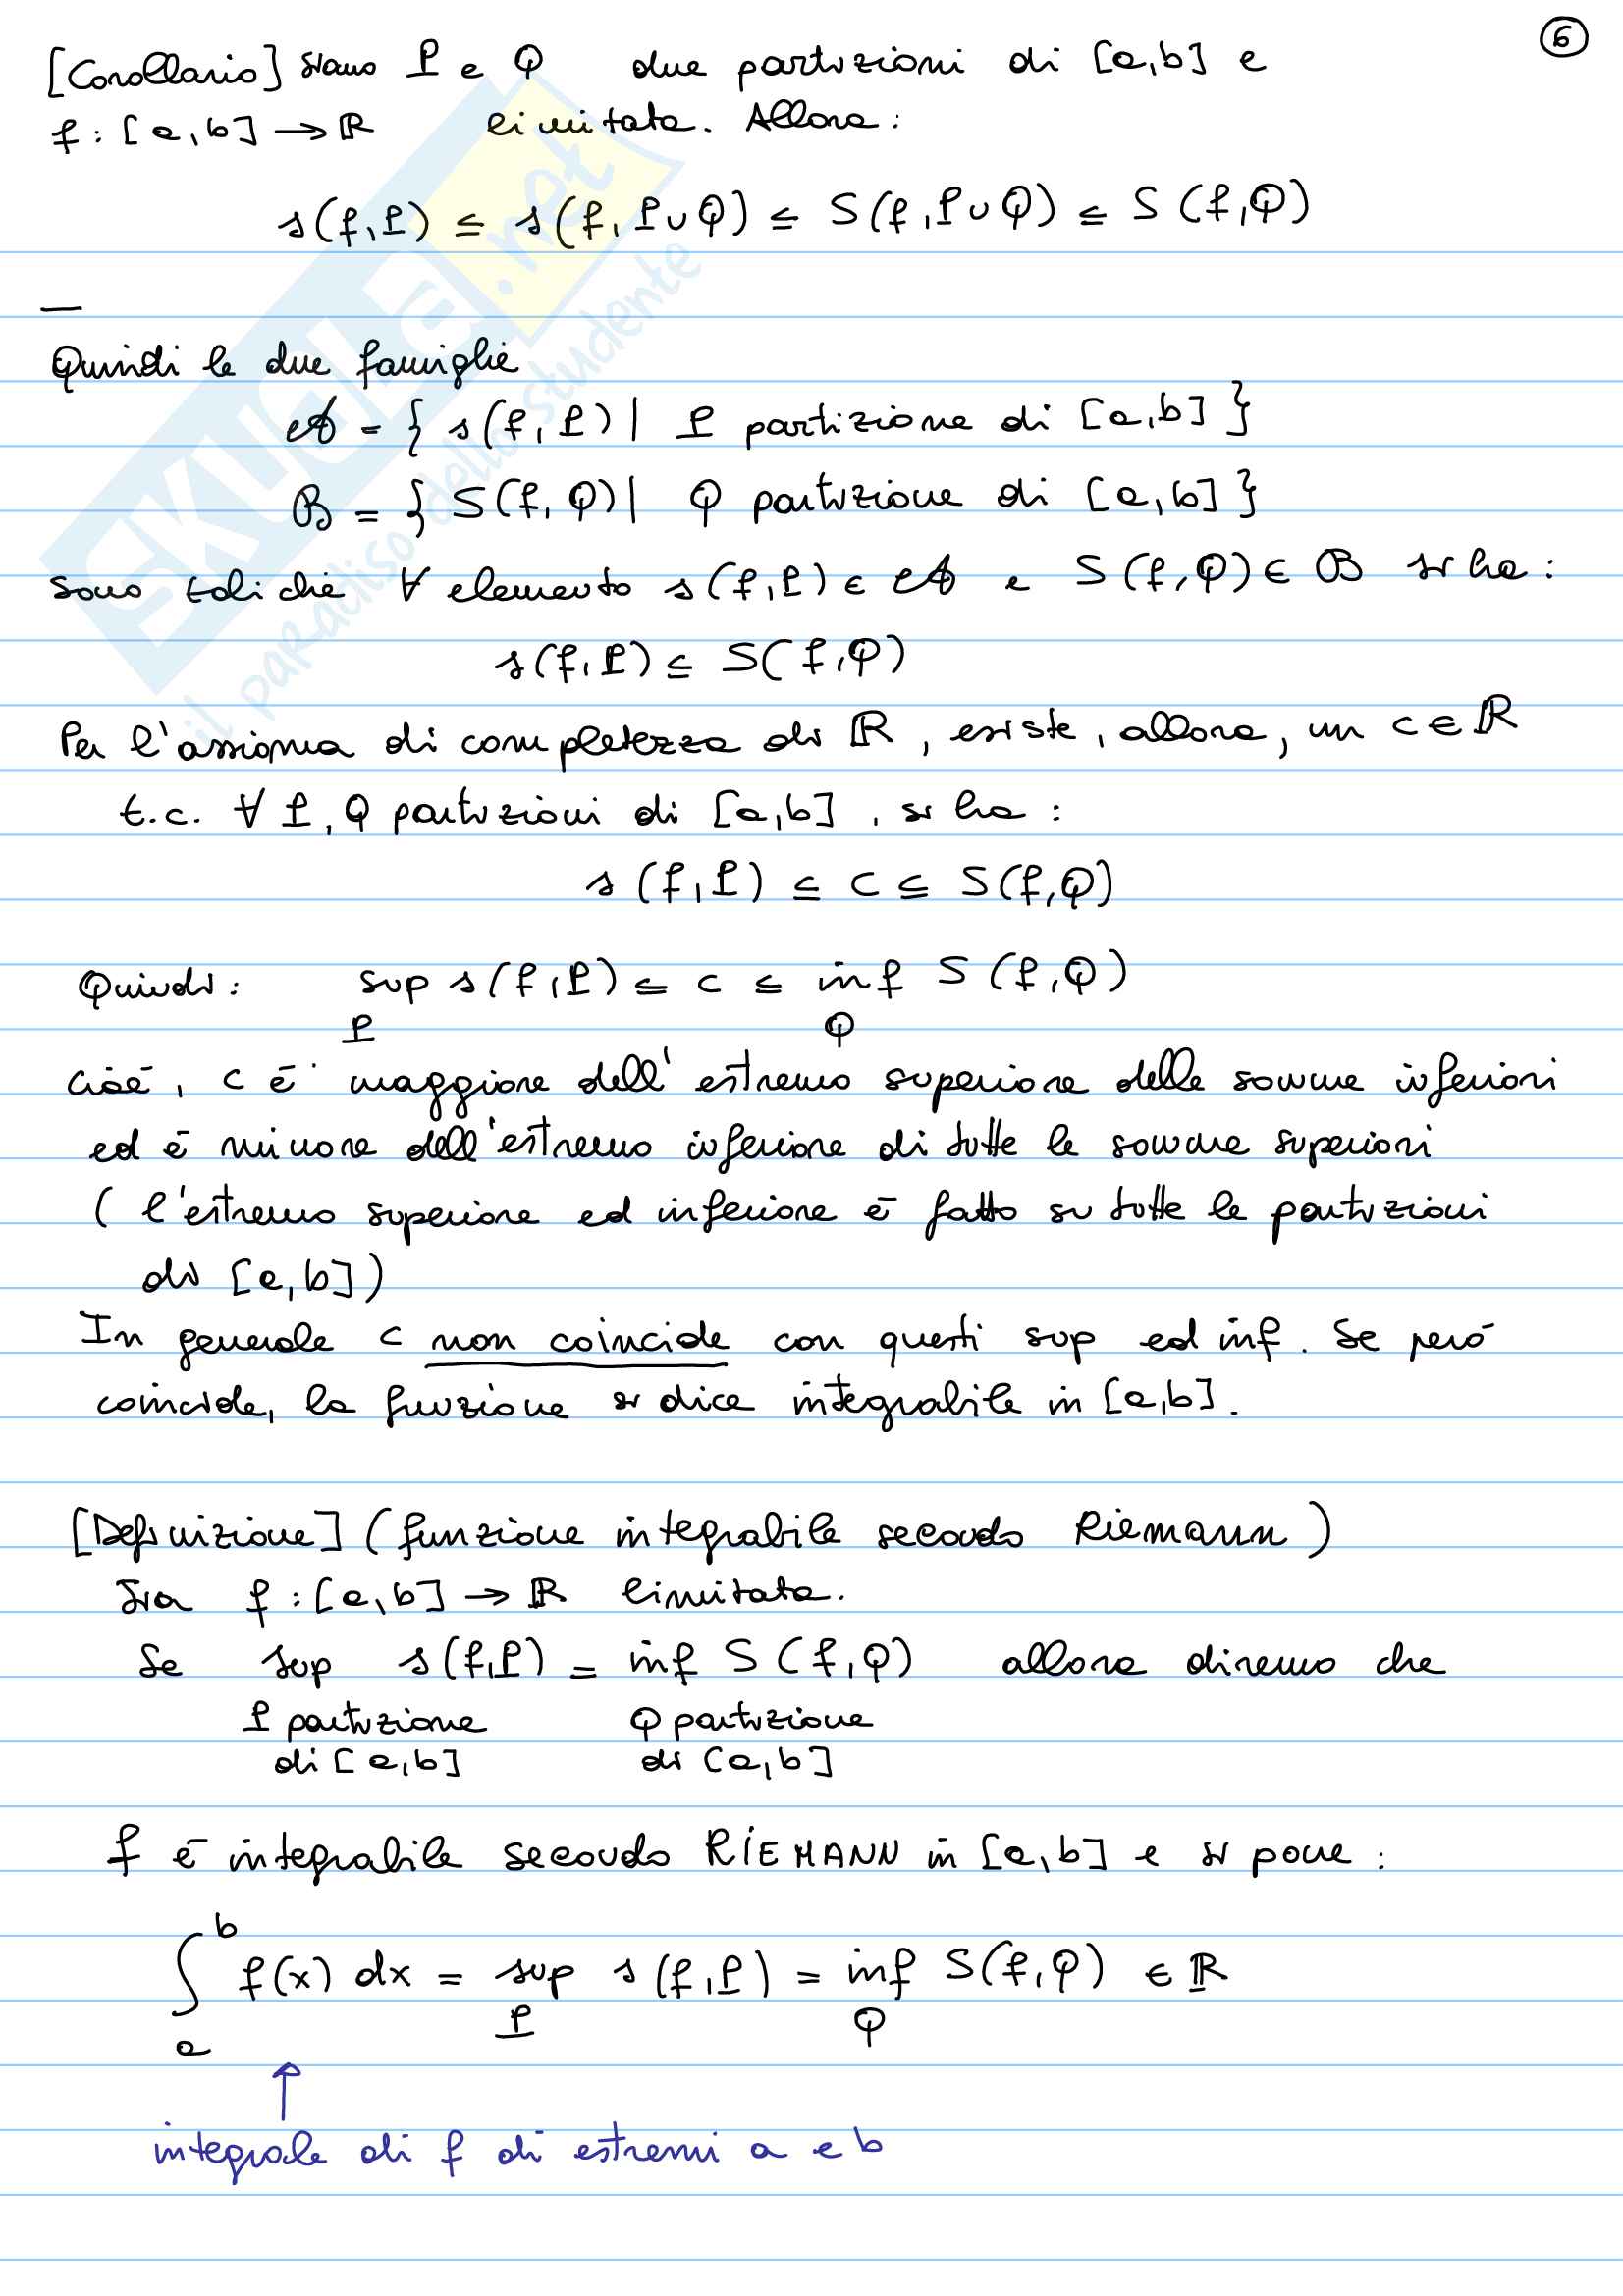 6
[Corollario] siano P e Q due partizioni di [a,b] e
f: [a,b] → ℝ limitata. Allora:
s(f,P) ≤ s(f,P∪Q) ≤ S(f,P∪Q) ≤ S(f,Q)
—
Quindi le due famiglie
𝒜 = { s(f,P) | P partizione di [a,b] }
ℬ = { S(f,Q) | Q partizione di [a,b] }
sono tali che ∀ elemento s(f,P) ∈ 𝒜 e S(f,Q) ∈ ℬ si ha:
s(f,P) ≤ S(f,Q)
Per l'assioma di completezza di ℝ, esiste, allora, un c ∈ ℝ
t.c. ∀ P, Q partizioni di [a,b], si ha:
s(f,P) ≤ c ≤ S(f,Q)
Quindi: sup s(f,P) ≤ c ≤ inf S(f,Q)
P Q
cioè, c è maggiore dell'estremo superiore delle somme inferiori
ed è minore dell'estremo inferiore di tutte le somme superiori
(l'estremo superiore ed inferiore è fatto su tutte le partizioni
di [a,b])
In generale c non coincide con questi sup ed inf. Se però
coincide, la funzione si dice integrabile in [a,b].
[Definizione] (funzione integrabile secondo Riemann)
Sia f: [a,b] → ℝ limitata.
Se sup s(f,P) = inf S(f,Q) allora diremo che
P partizione Q partizione
di [a,b] di [a,b]
f è integrabile secondo RIEMANN in [a,b] e si pone:
∫ₐᵇ f(x) dx = sup s(f,P) = inf S(f,Q) ∈ ℝ
P Q
↑
integrale di f di estremi a e b
SKUOLA.net
il paradiso dello studente